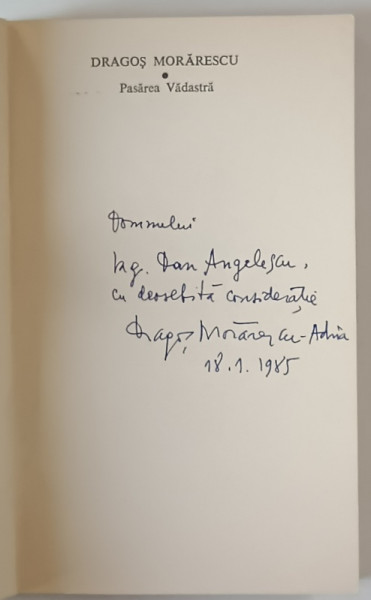 DRAGOȘ MORĂRESCU
Pasărea Vădastră
Domnului
Ing. Dan Angelescu,
cu deosebită considerație
Dragoș Morărescu-Adria
18.1.1985